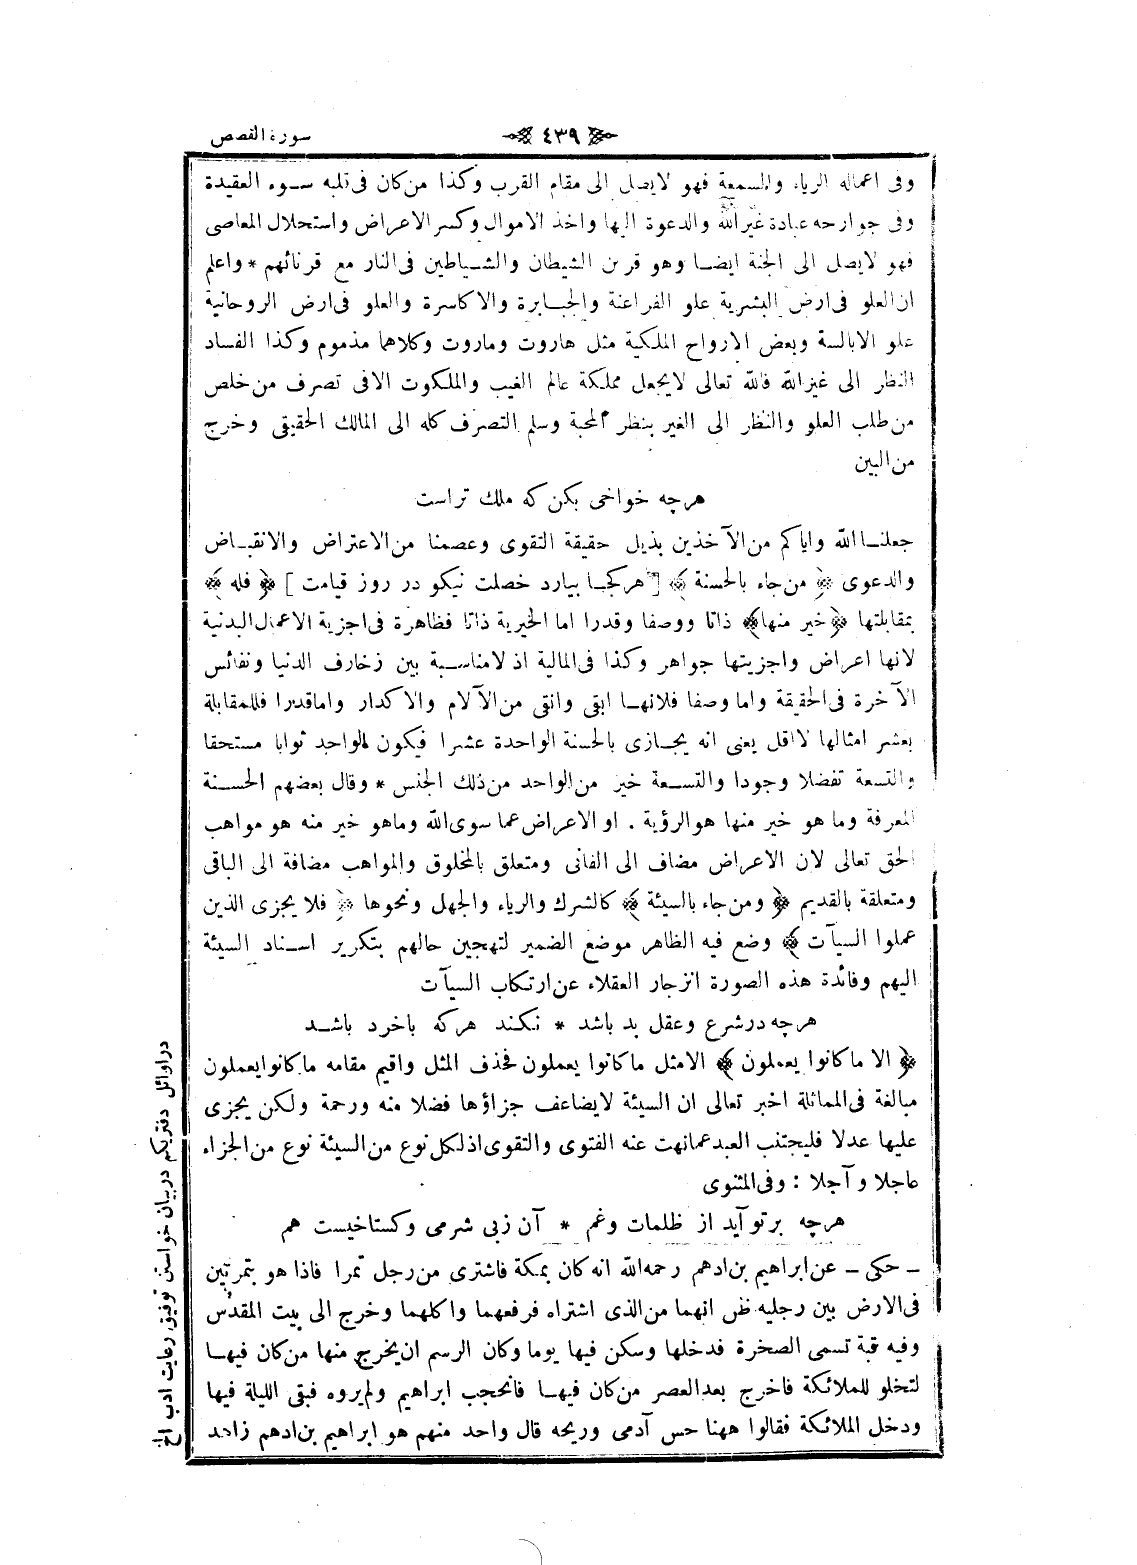 سورة القصص
٤٣٩
وفى اعماله الرياء والسمعة فهو لايصل الى مقام القرب وكذا من كان فى قلبه سوء العقيدة
وفى جوارحه عبادة غير الله والدعوة اليها واخذ الاموال وكسر الاعراض واستحلال المعاصى
فهو لايصل الى الجنة ايضا وهو قرين الشيطان والشياطين فى النار مع قرنائهم * واعلم
ان العلو فى ارض البشرية علو الفراعنة والجبابرة والاكاسرة والعلو فى ارض الروحانية
علو الابالسة وبعض الارواح الملكية مثل هاروت وماروت وكلاهما مذموم وكذا الفساد
النظر الى غير الله فالله تعالى لايجعل مملكة عالم الغيب والملكوت الا فى تصرف من خلص
من طلب العلو والنظر الى الغير بنظر المحبة وسلم التصرف كله الى المالك الحقيقى وخرج
من البين
هرچه خواخى بكن كه ملك تراست
جعلنا الله واياكم من الآخذين بذيل حقيقة التقوى وعصمنا من الاعتراض والانقباض
والدعوى ﴿ من جاء بالحسنة ﴾ [ هركجا بيارد خصلت نيكو در روز قيامت ] ﴿ فله ﴾
بمقابلتها ﴿ خير منها ﴾ ذاتا ووصفا وقدرا اما الخيرية ذاتا فظاهرة فى اجزية الاعمال البدنية
لانها اعراض واجزيتها جواهر وكذا فى المالية اذ لامناسبة بين زخارف الدنيا ونفائس
الآخرة فى الحقيقة واما وصفا فلانها ابقى وانقى من الآلام والاكدار واما قدرا فللمقابلة
بعشر امثالها لا اقل يعنى انه يجازى بالحسنة الواحدة عشرا فيكون الواحد ثوابا مستحقا
والتسعة تفضلا وجودا والتسعة خير من الواحد من ذلك الجنس * وقال بعضهم الحسنة
المعرفة وما هو خير منها هو الرؤية . او الاعراض عما سوى الله وماهو خير منه هو مواهب
الحق تعالى لان الاعراض مضاف الى الفانى ومتعلق بالمخلوق والمواهب مضافة الى الباقى
ومتعلقة بالقديم ﴿ ومن جاء بالسيئة ﴾ كالشرك والرياء والجهل ونحوها ﴿ فلا يجزى الذين
عملوا السيآت ﴾ وضع فيه الظاهر موضع الضمير لتهجين حالهم بتكرير اسناد السيئة
اليهم وفائدة هذه الصورة انزجار العقلاء عن ارتكاب السيآت
هرچه در شرع وعقل بد باشد * نكند هركه باخرد باشد
﴿ الا ما كانوا يعملون ﴾ الامثل ما كانوا يعملون فحذف المثل واقيم مقامه ما كانوا يعملون
مبالغة فى المماثلة اخبر تعالى ان السيئة لايضاعف جزاؤها فضلا منه ورحمة ولكن يجزى
عليها عدلا فليجتنب العبد عما نهت عنه الفتوى والتقوى اذ لكل نوع من السيئة نوع من الجزاء
عاجلا وآجلا : وفى المثنوى
هرچه برتو آيد از ظلمات وغم * آن زبى شرمى وكستاخيست هم
ـ حكى ـ عن ابراهيم بن ادهم رحمه الله انه كان بمكة فاشترى من رجل تمرا فاذا هو بتمرتين
فى الارض بين رجليه ظن انهما من الذى اشتراه فرفعهما واكلهما وخرج الى بيت المقدس
وفيه قبة تسمى الصخرة فدخلها وسكن فيها يوما وكان الرسم ان يخرج منها من كان فيها
لتخلو للملائكة فاخرج بعد العصر من كان فيها فانحجب ابراهيم ولم يروه فبقى الليلة فيها
ودخل الملائكة فقالوا ههنا حس آدمى وريحه قال واحد منهم هو ابراهيم بن ادهم زاهد
در اوائل دفتر يكم در بيان خواستن توفيق رعايت ادب الخ